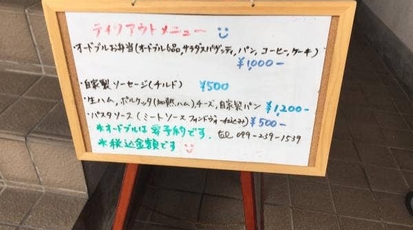 テイクアウトメニュー
・オードブルお弁当(オードブル6品,サラダスパゲッティ,パン,コーヒー,ケーキ)
¥1,000-
・自家製ソーセージ(チルド) ¥500
・生ハム,ポルケッタ(加熱ハム),チーズ,自家製パン ¥1,200-
・パスタソース(ミートソース ¥500-
*オードブルは要予約です. TEL 099-239-1539
*税込金額です